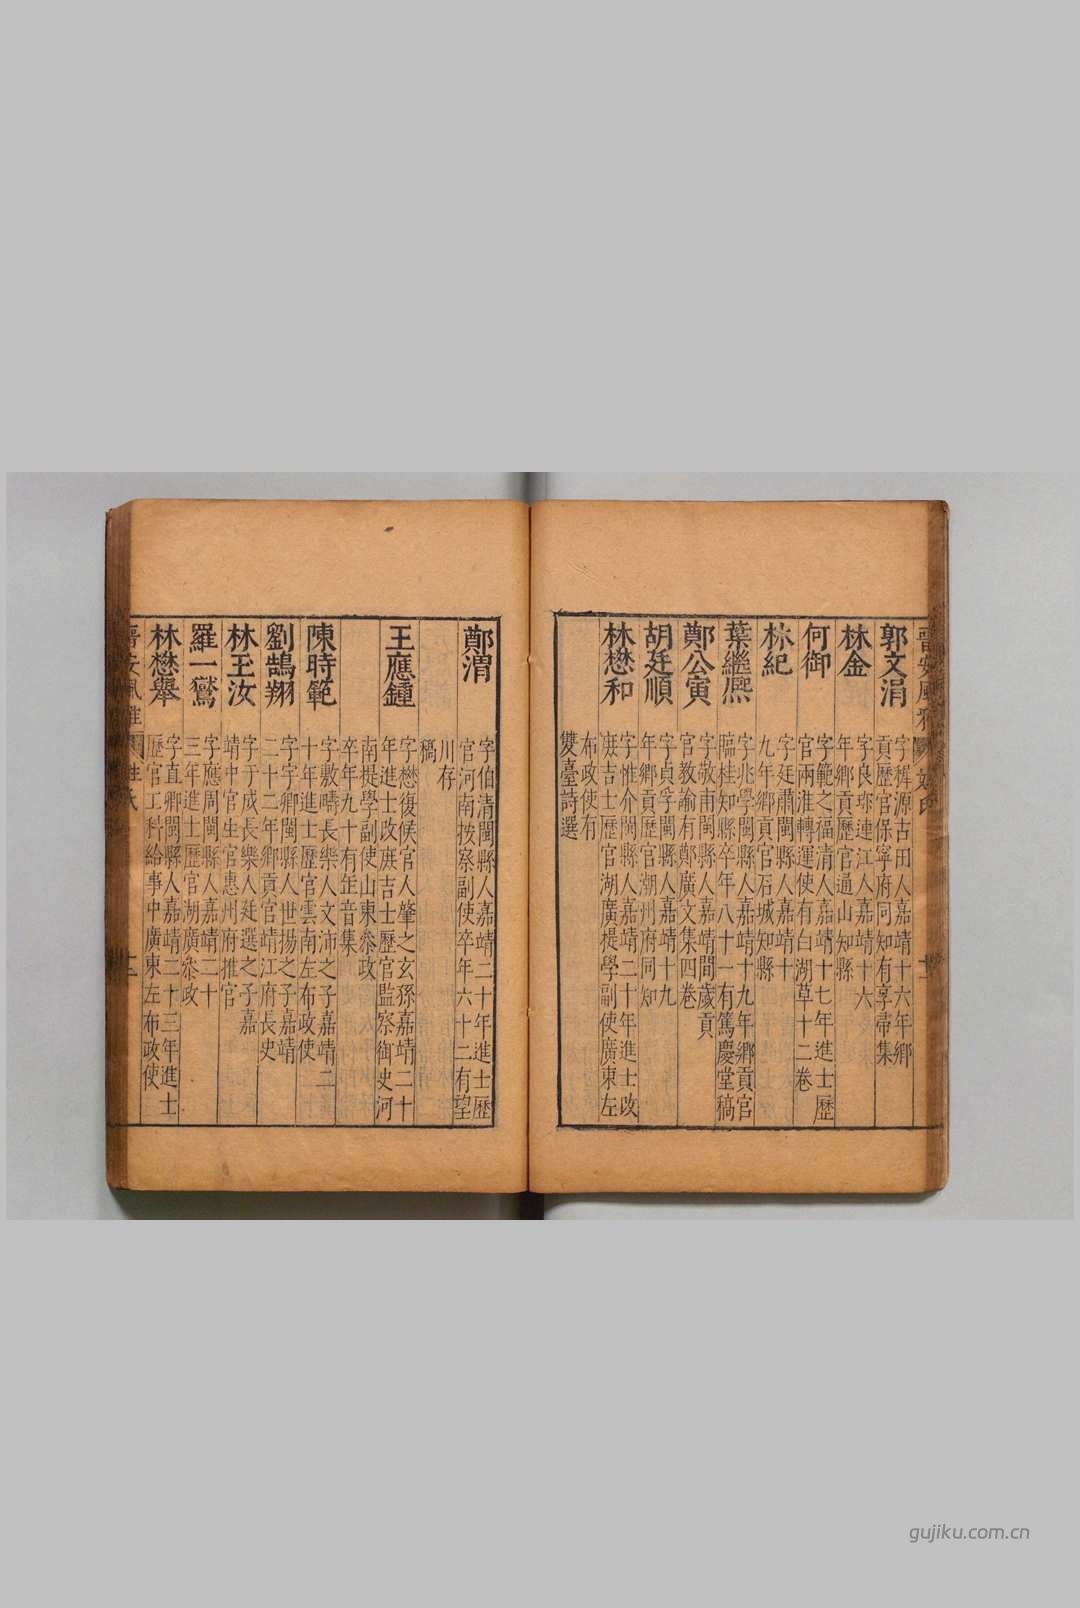 郭文涓
字穉源古田人嘉靖十六年鄉
貢歷官保寧府同知有享帚集
林金
字良珍連江人嘉靖十六
年鄉貢歷官通山知縣
何御
字範之福清人嘉靖十七年進士歷
官兩淮轉運使有白湖草十二卷
林紀
字廷肅閩縣人嘉靖十
九年鄉貢官石城知縣
葉繼熈
字兆學閩縣人嘉靖十九年鄉貢官
臨桂知縣卒年八十一有篤慶堂稿
鄭公寅
字敬甫閩縣人嘉靖間歲貢
官教諭有鄭廣文集四卷
胡廷順
字貞孚閩縣人嘉靖十九
年鄉貢歷官潮州府同知
林懋和
字惟介閩縣人嘉靖二十年進士改
庶吉士歷官湖廣提學副使廣東左
布政使有
雙臺詩選
晉安風雅
姓氏
十二
鄭渭
字伯清閩縣人嘉靖二十年進士歷
官河南按察副使卒年六十二有望
川存
稿
王應鍾
字懋復候官人肇之玄孫嘉靖二十
年進士改庶吉士歷官監察御史河
南提學副使山東叅政
卒年九十有缶音集
陳時範
字敷疇長樂人文沛之子嘉靖二
十年進士歷官雲南左布政使
劉鵠翔
字宇卿閩縣人世揚之子嘉靖
二十二年鄉貢官靖江府長史
林王汝
字于成長樂人廷選之子嘉
靖中官生官惠州府推官
羅一鷟
字應周閩縣人嘉靖二十
三年進士歷官湖廣叅政
林懋舉
字直卿閩縣人嘉靖二十三年進士
歷官工科給事中廣東左布政使
晉安風雅
姓氏
十三
gujiku.com.cn